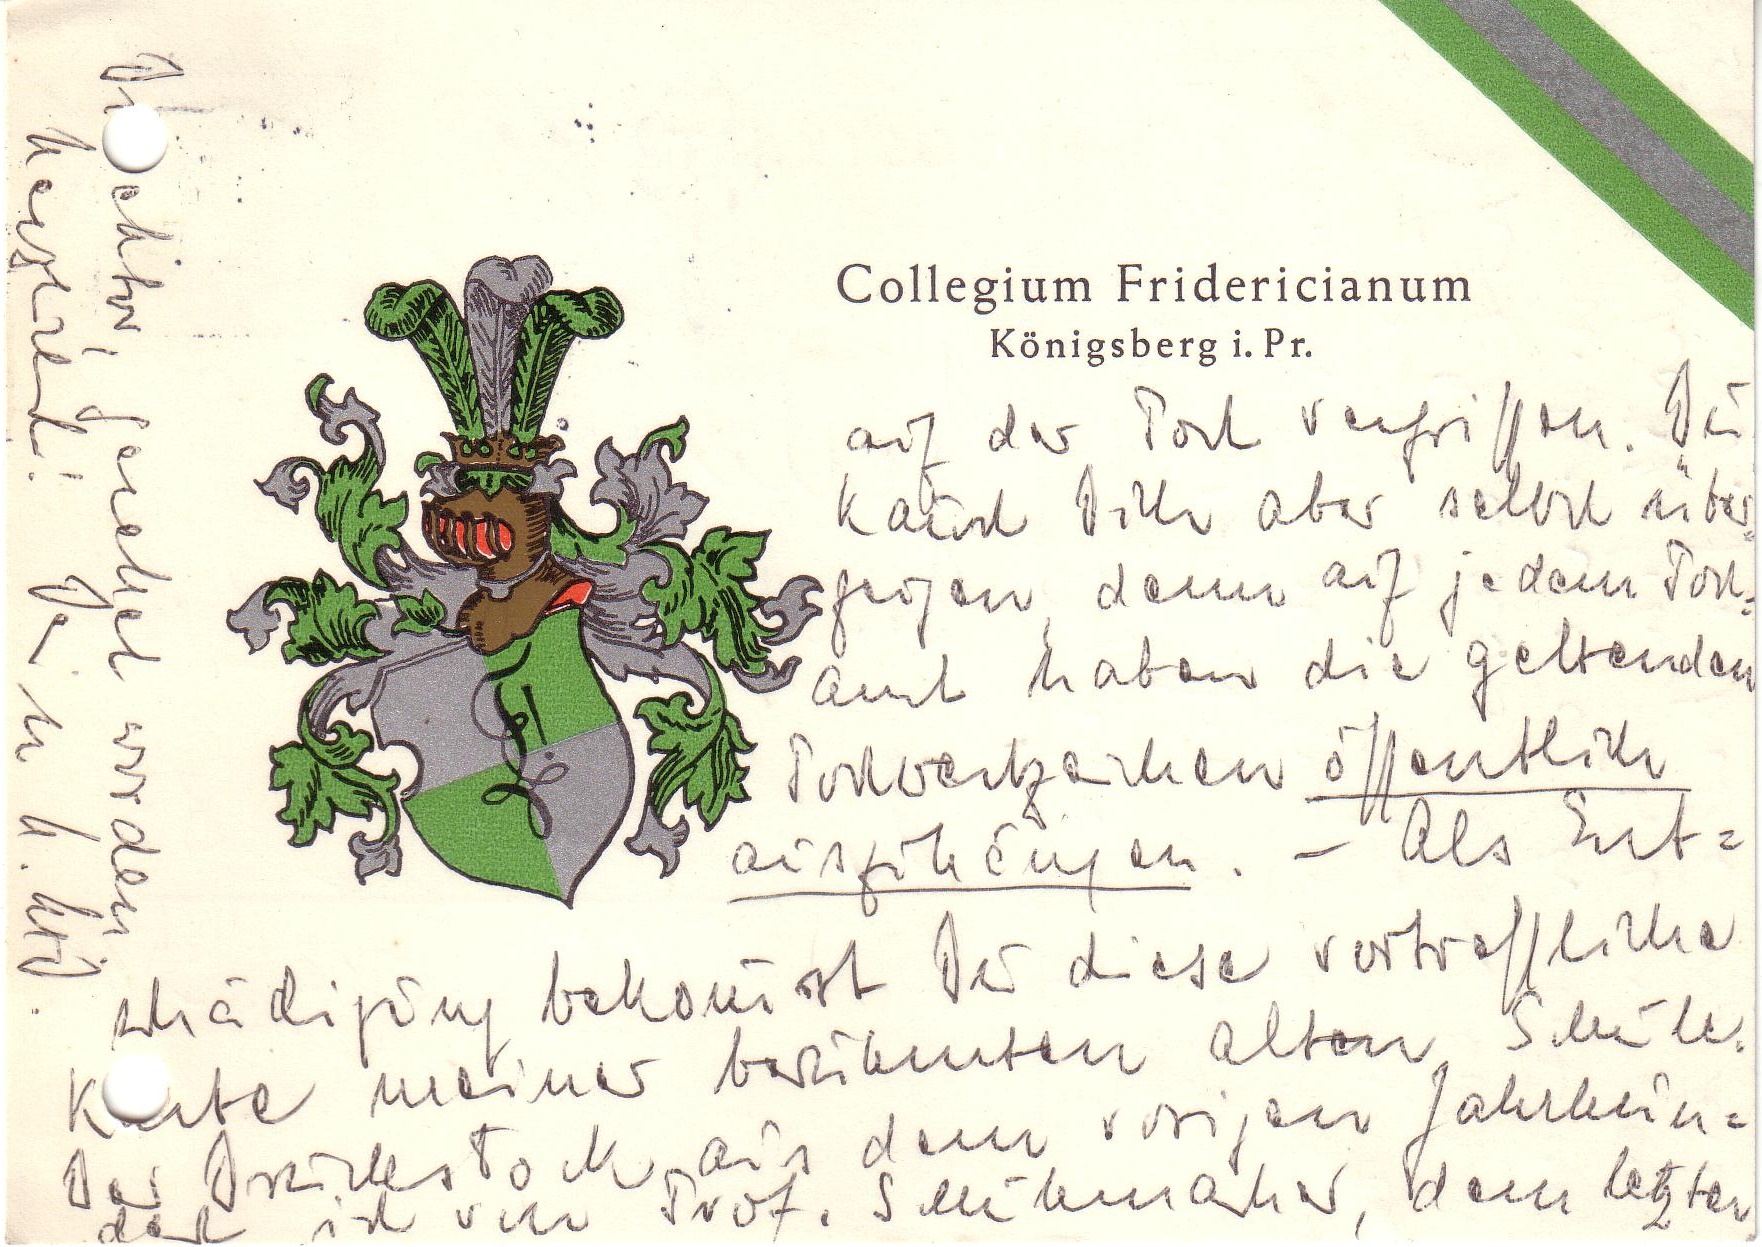 Collegium Fridericianum
Königsberg i. Pr.
auf der Post vergriffen. Du
kannst Dich aber selbst über=
zeugen, denn auf jedem Post=
amt haben die geltenden
Postwertzeichen öffentlich
auszuhängen. – Als Ent=
schädigung bekommst Du diese vortreffliche
Karte meiner berühmten alten Schule.
Der Druckstock aus dem vorigen Jahrhun=
dert ist von Prof. Schuhmacher, dem letzten
Direktor, gerettet worden
Herzlich! Dein